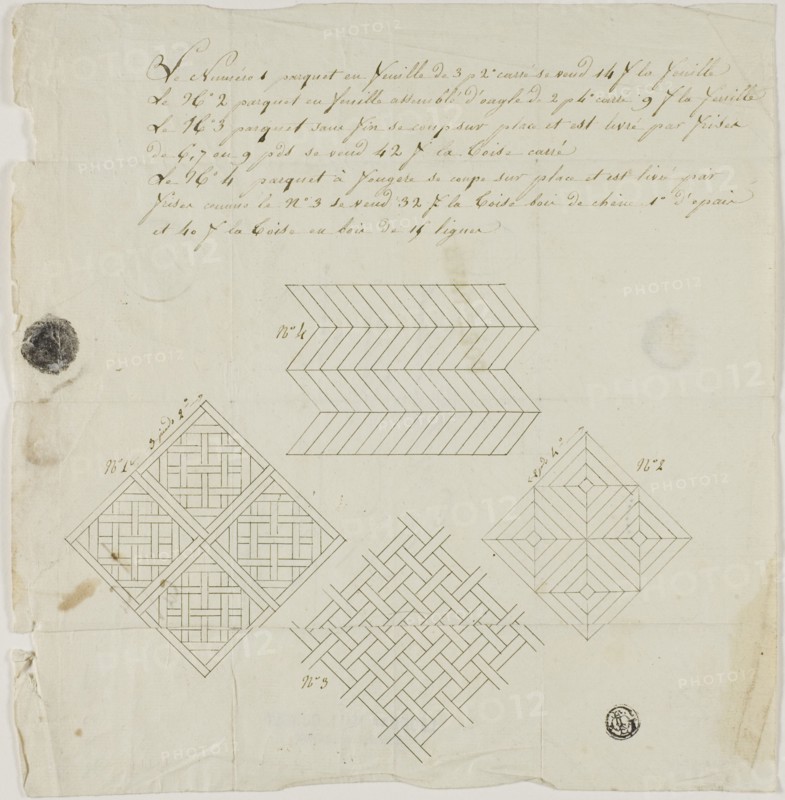 Le Numéro 1 parquet en feuille de 3 p 2º carré se vend 14 f la feuille
Le Nº 2 parquet en feuille assemblé d'onglé de 2 p 4º carré 9 f la feuille
Le Nº 3 parquet sans fin se coup sur place et est livré par frises
de 6, 7 ou 9 pds se vend 42 f la toise carré
Le Nº 4 parquet à fougere se coupe sur place et est livré par
frises comme le nº 3 se vend 32 f la toise bois de chêne 1º d'epais
et 40 f la toise en bois de 15 lignes
Nº 4
3 pieds 2º
Nº 1
2 pieds 4º
Nº 2
Nº 3
PHOTO12